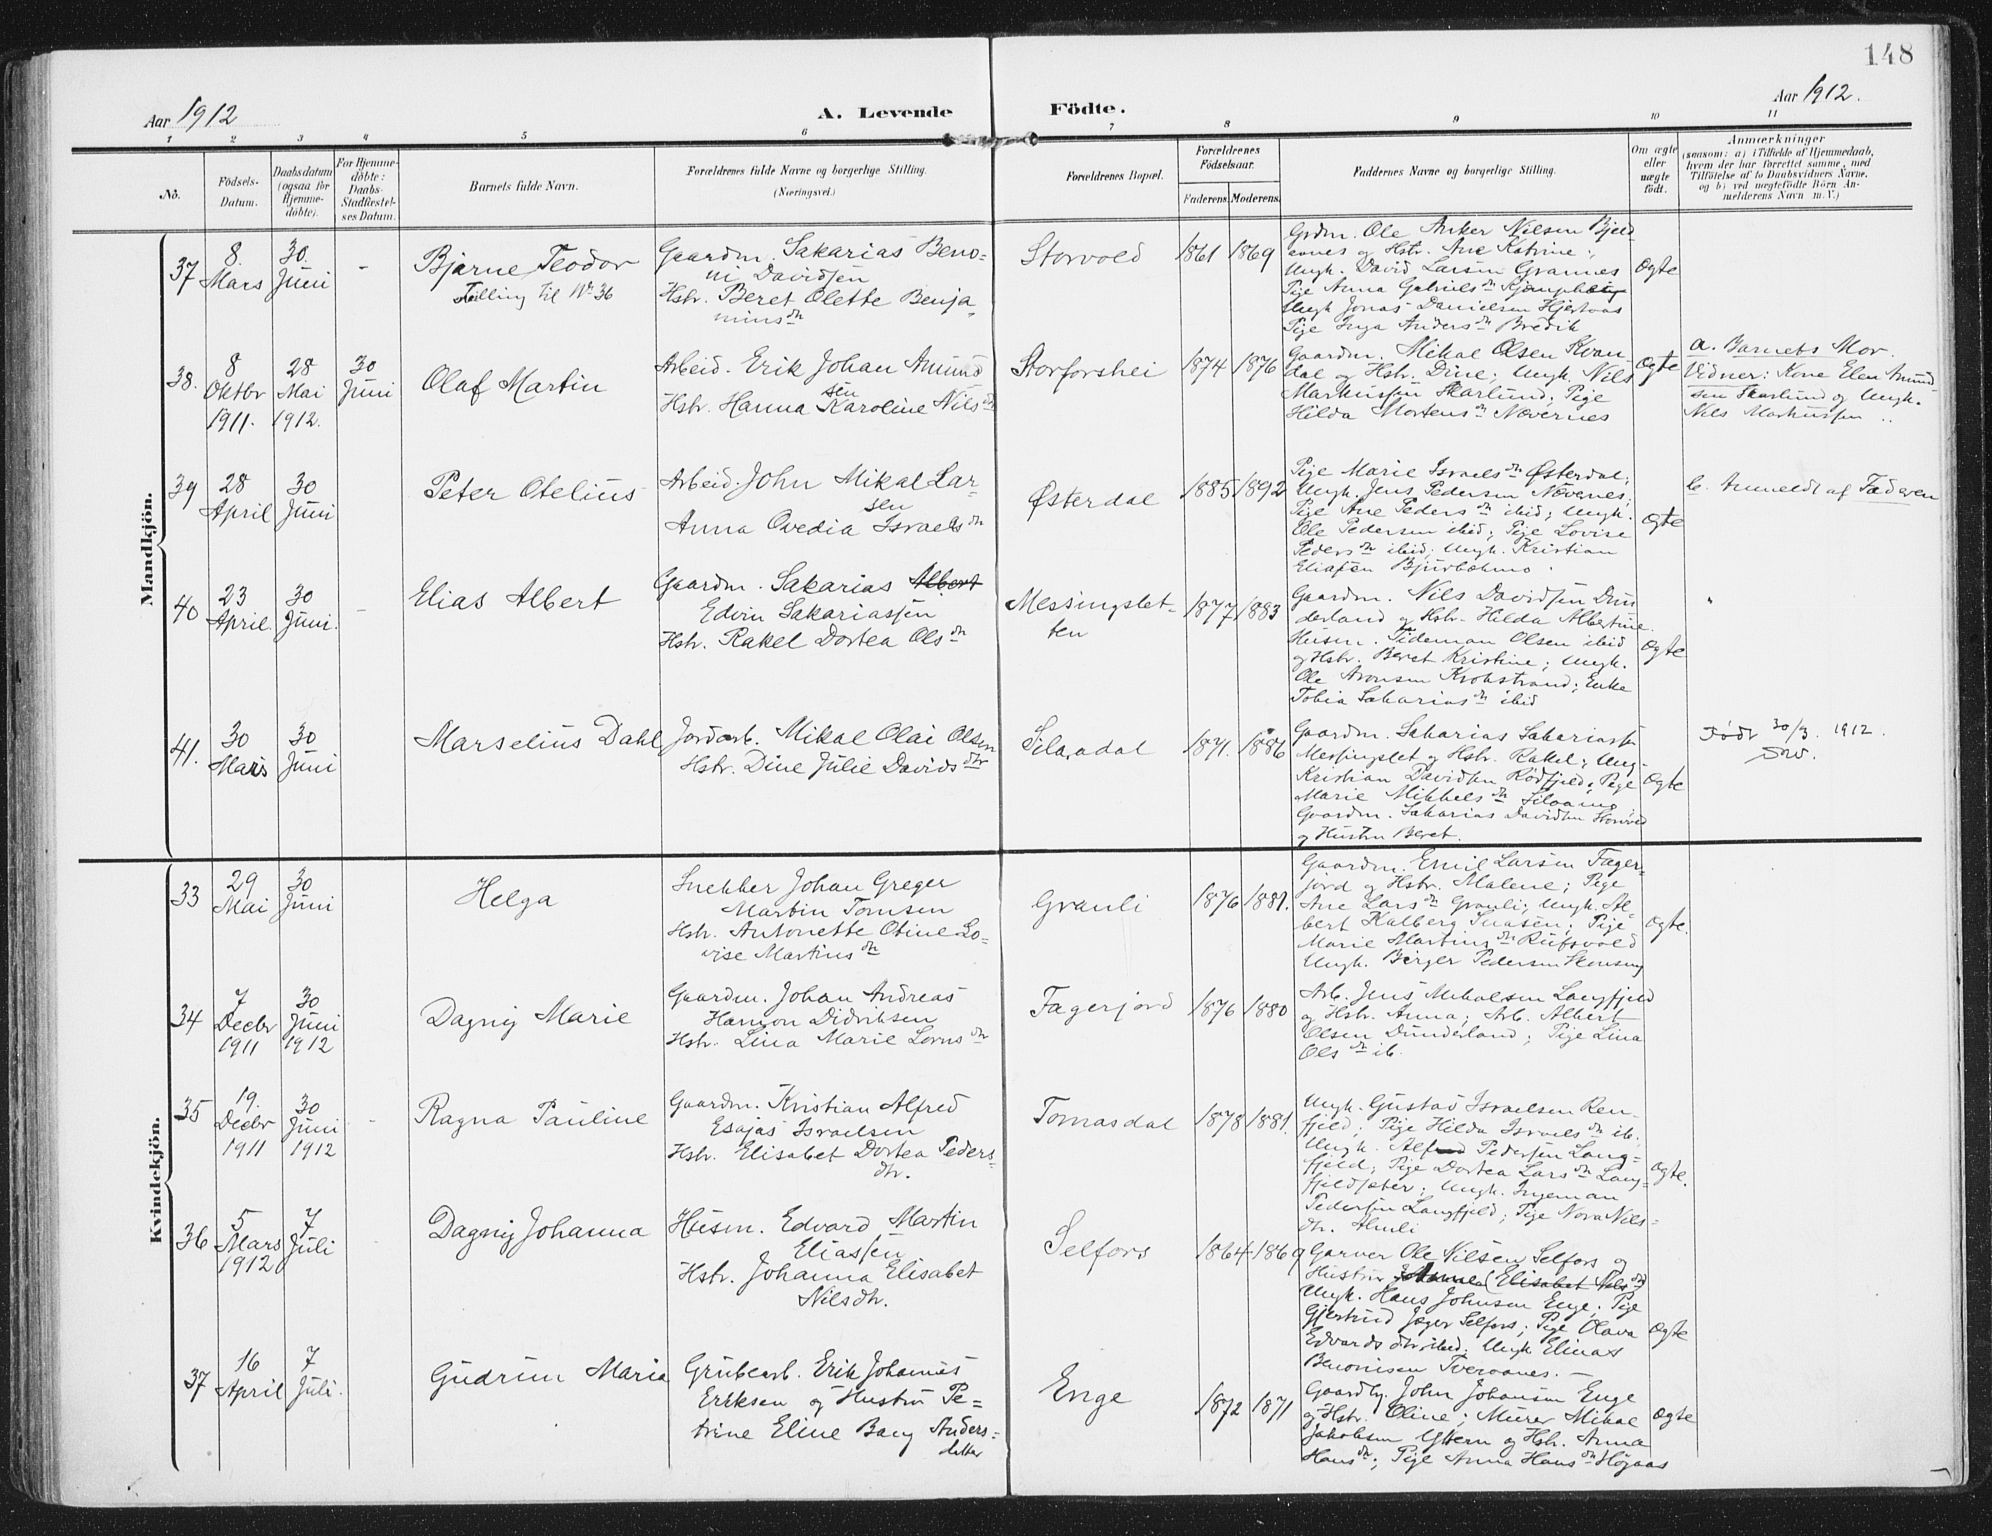 148
Aar 1912
A. Levende
Födte.
Aar 1912.
1 2 3 4 5 6 7 8 9 10 11
No.
Födsels-
Datum.
Daabsdatum
(ogsaa for
Hjemme-
döbte).
For Hjemme-
döbte:
Daabs-
Stadfæstel-
ses Datum.
Barnets fulde Navn.
Forældrenes fulde Navne og borgerlige Stilling.
(Næringsvei.)
Forældrenes Bopæl.
Forældrenes
Födselsaar.
Faderens. Moderens.
Faddernes Navne og borgerlige Stilling.
Om ægte
eller
uægte
födt.
Anmærkninger
(saasom: a) i Tilfælde af Hjemmedaab,
hvem der har forrettet samme, med
Tilföielse af to Daabsvidners Navne,
og b) ved uægtefödte Börn An-
melderens Navn m. V.)
Mandkjön.
37
8.
Mars
30.
Juni
-
Bjarne Teodor
Tvilling til Nr 36
Gaardm. Sakarias Beno-
ni Davidsen
Hstr. Beret Olette Benja-
mins dtr
Storvold
1861 1869
Grdm. Ole Anker Nilsen Bjeld-
aanes og Hstr. Ane Katrine;
Ungk. David Larsen Grannes
Pige Anna Gabriels dtr
Ungk Jonas Danielsen Hjertaas
Pige Inga Anders dtr Bredik
Ægte
38.
8
Oktbr
1911.
28
Mai
1912.
30
Juni
Olaf Martin
Arbeid. Erik Johan Amund
sen
Hstr. Hanna Karoline Nils dtr
Storforshei
1874 1876
Gaardm. Mikal Olsen Kvan-
dal og Hstr. Dine; Ungk. Nils
Markussen Skarlund; Pige
Hilda Mortens dtr Nævernes
Ægte
a. Barnets Mor.
Vidner: Kone Elen Amund-
sen Skarlund og Ungk.
Nils Markussen
39
28
April
30
Juni
Peter Otelius
Arbeid. John Mikal Lar-
sen
Anna Ovedia Israels dtr
Østerdal
1885 1892
Pige Marie Israels dtr Østerdal;
Ungk. Jens Pedersen Nævernes;
Pige Ane Peders dtr ibid; Ungk.
Ole Pedersen ibid; Pige Lovise
Peders dtr ibid; Ungk. Kristian
Eliasen Bjurbækmo.
Ægte
b. Anmeldt af Faderen
40
23
April.
30
Juni.
-
Elias Albert
Gaardm. Sakarias Albert
Edvin Sakariassen
Hstr. Rakel Dortea Ols dtr
Messingslet-
ten
1877 1883
Gaardm. Nils Davidsen Dun-
derland og Hstr. Hilda Albertine.
Husm. Tideman Olsen ibid
og Hstr. Beret Kristine; Ungk.
Ole Aronsen Krokstrand; Enke
Tobia Sakarias dtr ibid
Ægte
41.
30
Mars
30
Juni
Marselius Dahl
Jordarb. Mikal Olai Olsen
Hstr. Dine Julie Davids dtr
Silaadal
1871. 1886
Gaardm. Sakarias Sakariassen
Messingslet og Hstr. Rakel; Ung.
Kristian Davidsen Rödfjeld; Pige
Marie Mikkels dtr
Gaardm. Sakarias Davidsen Storvold
og Hustru Beret.
Ægte
Födt 30/3 1912.
Kvindekjön.
33
29
Mai
30
Juni
Helga
Snekker Johan Greger
Martin Tomsen
Hstr. Antonette Otine Lo-
vise Martins dtr
Granli
1876 1881.
Gaardm. Emil Larsen Fager-
jord og Hstr. Malene; Pige
Ane Lars dtr Granli; Ungk. Al-
bert Kalberg Snasen; Pige
Marie Martins dtr
Ungk. Birger Pedersen
Ægte.
34
7
Decbr
1911
30
Juni
1912
Dagny Marie
Gaardm. Johan Andreas
Hamon Didriksen
Hstr. Lina Marie Lorns dtr
Fagerjord
1876 1880
Arb. Jens Mikalsen Langfjeld
og Hstr. Anna; Arb. Albert
Olsen Dunderland; Pige Lina
Ols dtr ib.
35
19.
Decbr
1911
30
Juni
1912
-
Ragna Pauline
Gaardm. Kristian Alfred
Esajas Israelsen
Hstr. Elisabet Dortea Peders-
dtr.
Tomasdal
1878 1881.
Ungk. Gustav Israelsen Ren-
fjeld; Pige Hilda Israels dtr ib.
Ungk. Alfred Pedersen Lang-
fjeld; Pige Dortea Lars dtr Lang-
fjeldsæter; Ungk. Ingeman
Pedersen Langfjeld; Pige Nora Nils-
dtr. Almli
Ægte.
36
5
Mars
1912
7
Juli
Dagny Johanna
Husm. Edvard Martin
Eliassen
Hstr. Johanna Elisabet
Nilsdtr.
Selfors
1864 1869
Garver Ole Nilsen Selfors og
Hustru (Elisabet Nils dtr)
Ungk. Hans Johnsen Enge; Pige
Gjertrud Jæger Selfors; Pige Olava
Edvards dtr ibid. Ungk Elinas
Benonisen Tveraanes. -
Ægte
37
16
April
7
Juli.
Gudrun Maria
Grubearb. Erik Johannes
Eriksen og Hustru Pe-
trine Eline Bang Anders-
datter
Enge
1872 1871
Gaardbg. John Johansen Enge
og Hstr. Oline; Murer Mikal
Jakobsen Ytteren og Hstr. Anna
Hans dtr; Pige Anna Hans dtr Högaas
Ægte